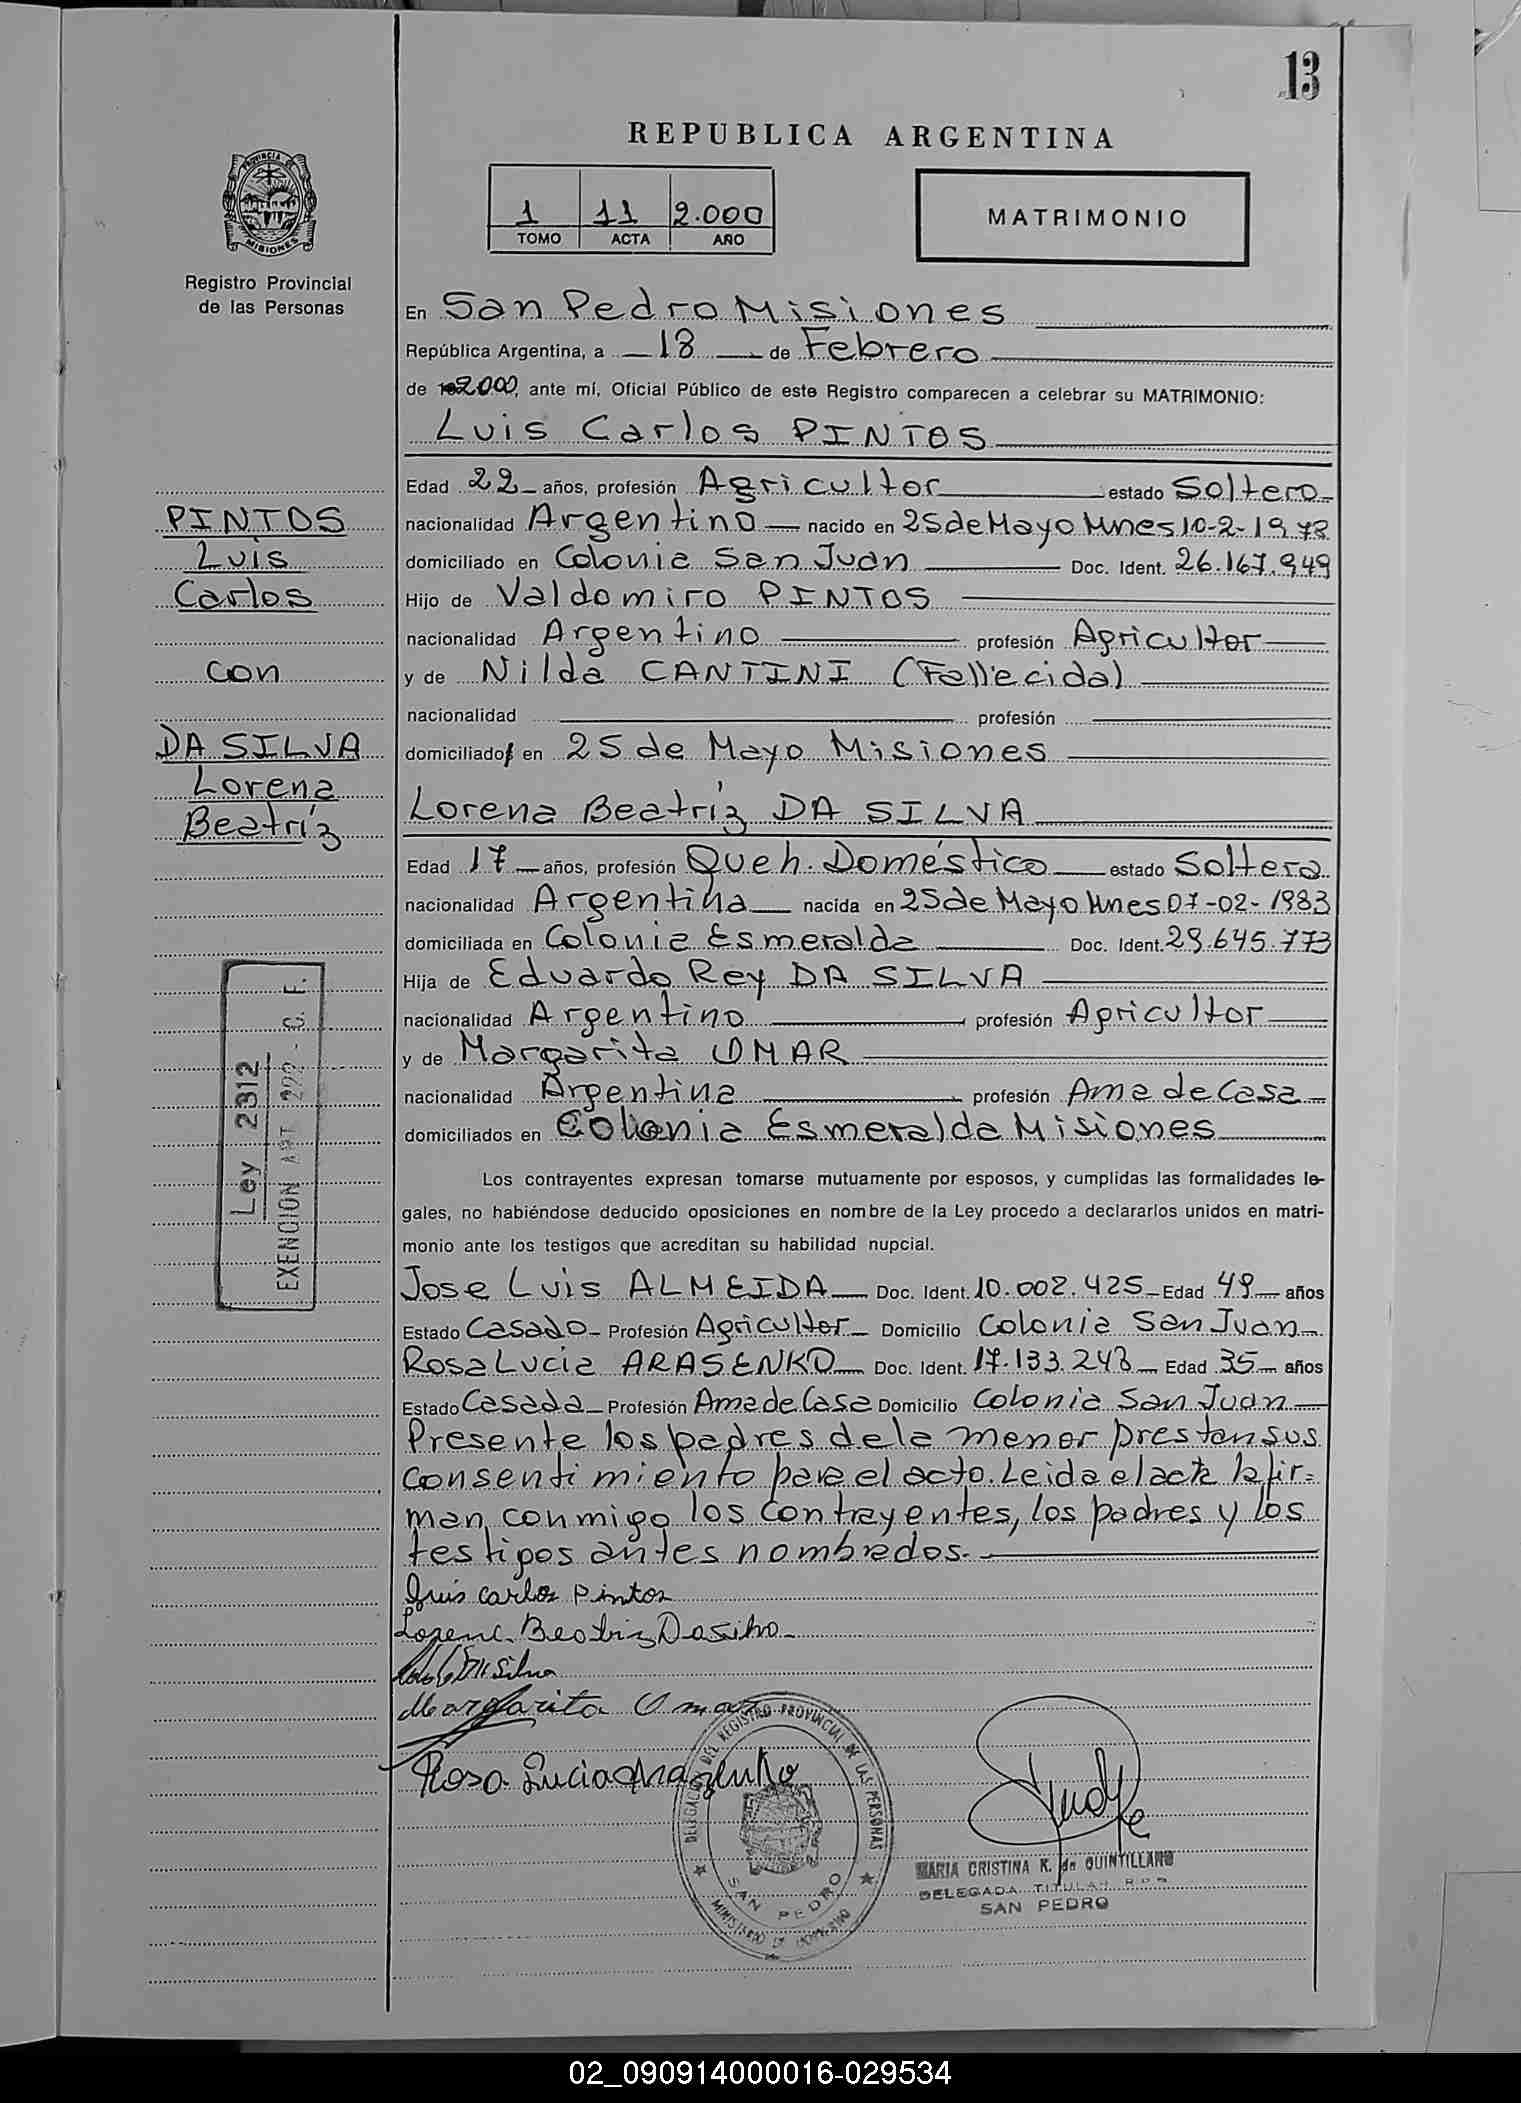 13
REPUBLICA ARGENTINA
1 11 2.000
TOMO ACTA AÑO
MATRIMONIO
PROVINCIA DE MISIONES
Registro Provincial
de las Personas
En San Pedro Misiones
República Argentina, a 18 de Febrero
de 2000, ante mí, Oficial Público de este Registro comparecen a celebrar su MATRIMONIO:
Luis Carlos PINTOS
Edad 22 años, profesión Agricultor estado Soltero
nacionalidad Argentino nacido en 25 de Mayo Mnes 10-2-1978
domiciliado en Colonia San Juan Doc. Ident. 26.167.949
Hijo de Valdomiro PINTOS
nacionalidad Argentino profesión Agricultor
y de Nilda CANTINI (Fallecida)
nacionalidad profesión
domiciliado en 25 de Mayo Misiones
PINTOS
Luis
Carlos
con
DA SILVA
Lorena
Beatríz
Lorena Beatríz DA SILVA
Edad 17 años, profesión Queh. Doméstico estado Soltera
nacionalidad Argentina nacida en 25 de Mayo Mnes 07-02-1983
domiciliada en Colonia Esmeralda Doc. Ident. 29.645.773
Hija de Eduardo Rey DA SILVA
nacionalidad Argentino profesión Agricultor
y de Margarita OMAR
nacionalidad Argentina profesión Ama de Casa
domiciliados en Colonia Esmeralda Misiones
Ley 2312
EXENCION ART 222 - C. F.
Los contrayentes expresan tomarse mutuamente por esposos, y cumplidas las formalidades le-
gales, no habiéndose deducido oposiciones en nombre de la Ley procedo a declararlos unidos en matri-
monio ante los testigos que acreditan su habilidad nupcial.
Jose Luis ALMEIDA Doc. Ident. 10.002.425 Edad 49 años
Estado Casado Profesión Agricultor Domicilio Colonia San Juan
Rosa Lucia ARASENKO Doc. Ident. 17.133.243 Edad 35 años
Estado Casada Profesión Ama de Casa Domicilio Colonia San Juan
Presente los padres de la menor prestan sus
consentimiento para el acto. Leida el acta la fir=
man conmigo los contrayentes, los padres y los
testigos antes nombrados.
Luis Carlos Pintos
Lorena Beatriz Dasilva
Silva
Margarita Omar
Rosa Lucia Arazenko
DELEGACION DEL REGISTRO PROVINCIAL DE LAS PERSONAS
SAN PEDRO
MINISTERIO DE GOBIERNO
MARIA CRISTINA K. de QUINTILLANO
DELEGADA TITULAR R.P.P.
SAN PEDRO
02_090914000016-029534